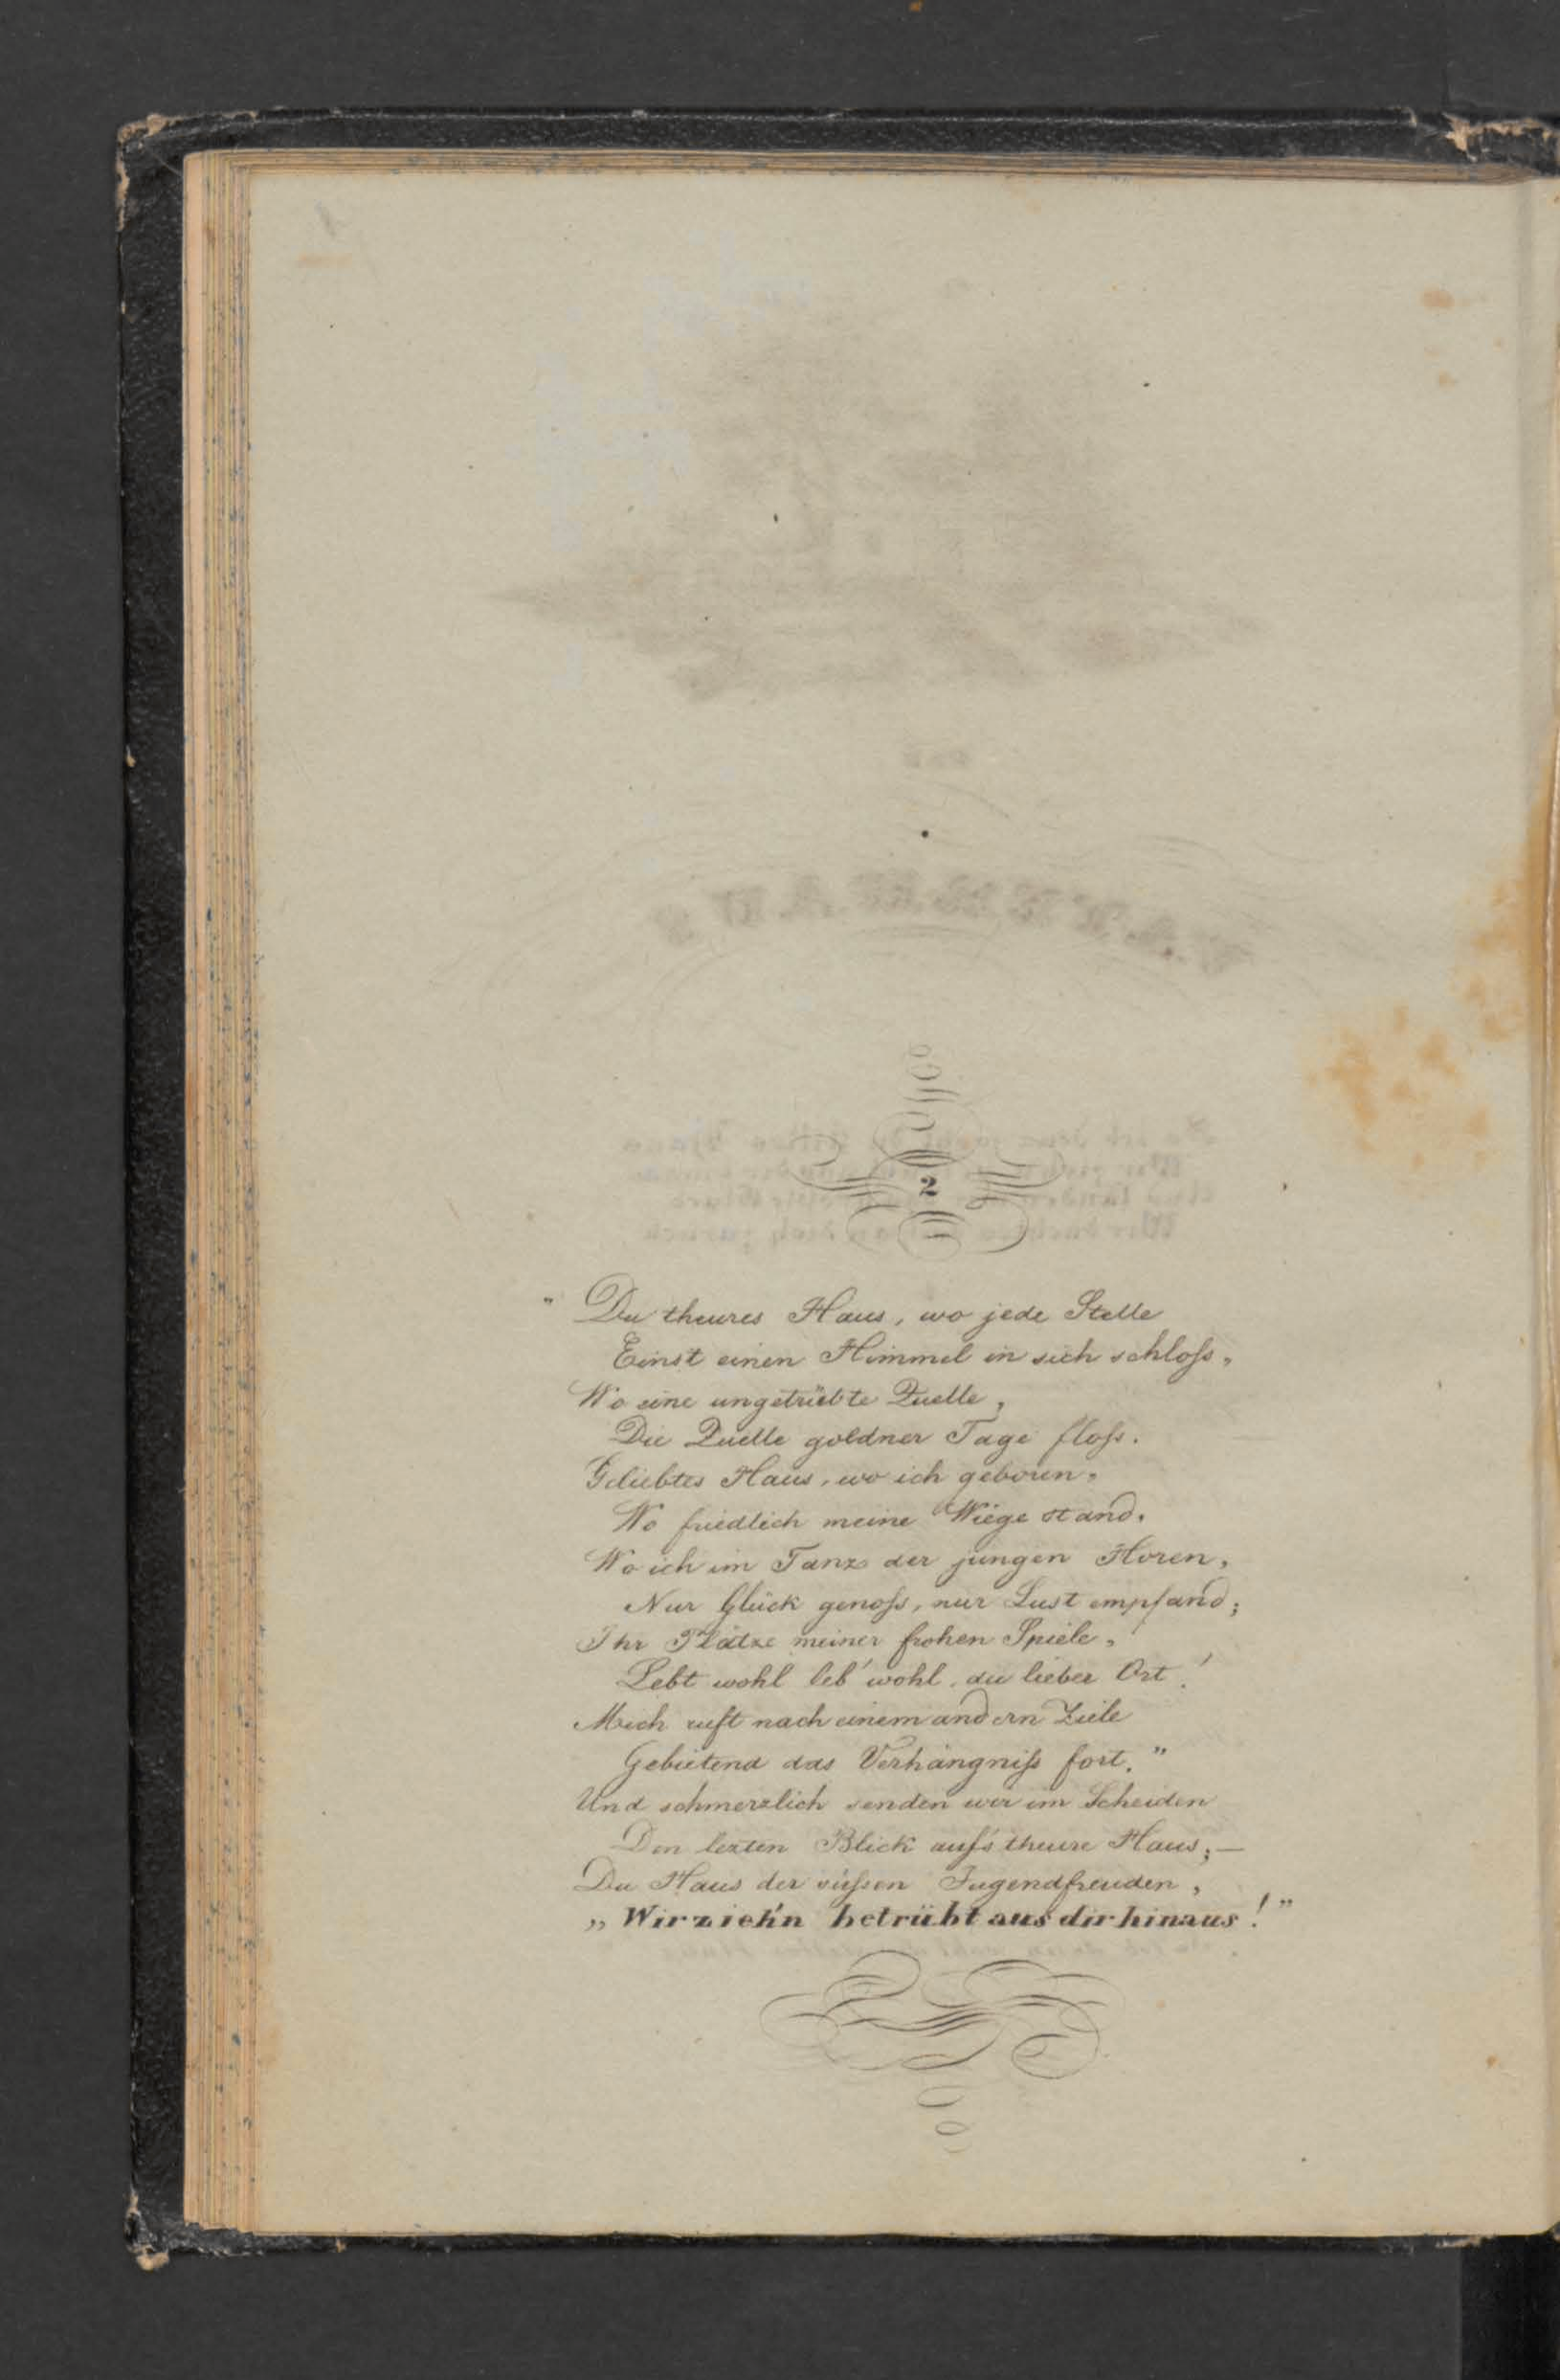 2
„ Du theures Haus, wo jede Stelle
Einst einen Himmel in sich schloſs,
Wo eine ungetrübte Quelle,
Die Quelle goldner Tage floſs.
Geliebtes Haus, wo ich geboren,
Wo friedlich meine Wiege stand,
Wo ich im Tanz der jungen Horen,
Nur Glück genoſs, nur Lust empfand;
Ihr Plätze meiner frohen Spiele,
Lebt wohl leb' wohl, du lieber Ort!
Mich ruft nach einem andern Ziele
Gebietend das Verhängniſs fort."
Und schmerzlich senden wir im Scheiden
Den lezten Blick auf's theure Haus; —
Du Haus der süſsen Jugendfreuden,
„ Wir zieh'n betrübt aus dir hinaus! "